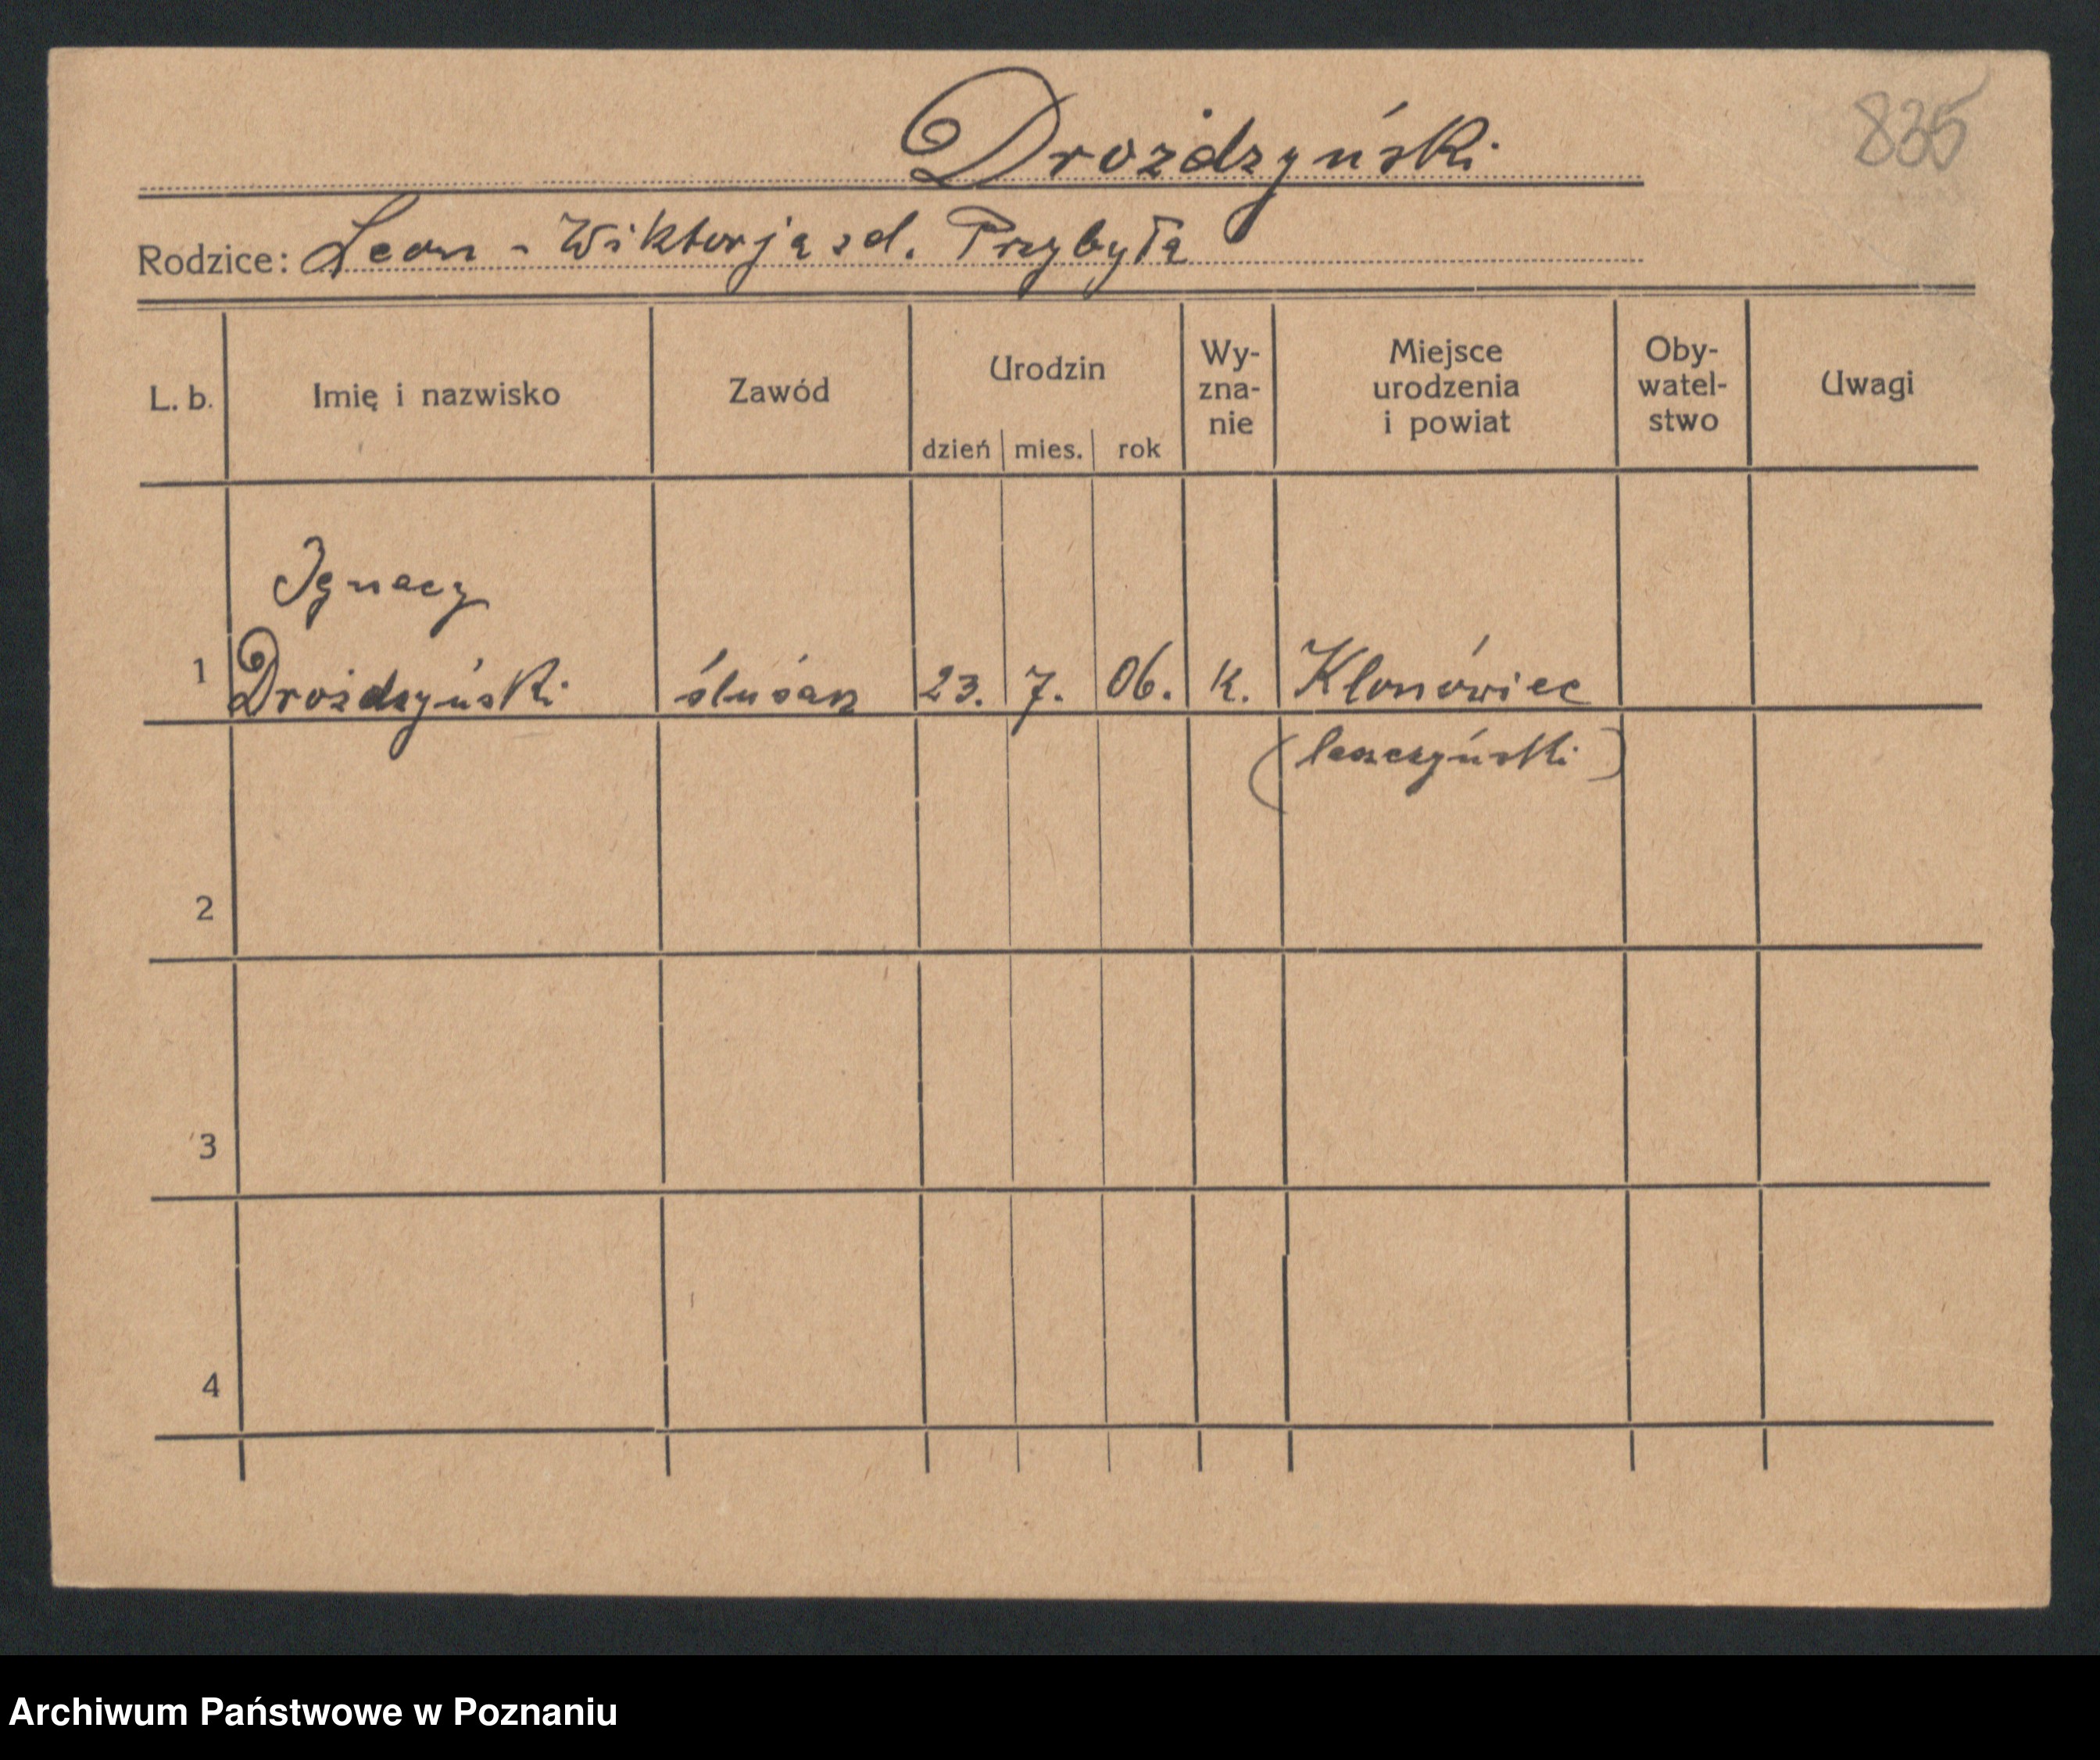 835
Drożdzyński
Rodzice: Leon - Wiktorja zd. Przybyła
L. b. Imię i nazwisko Zawód Urodzin dzień mies. rok Wy-zna-nie Miejsce urodzenia i powiat Oby-watel-stwo Uwagi
Ignacy
1 Drożdzyński 23. 7. 06. k. Klonówiec
(leszczyński)
2
3
4
Archiwum Państwowe w Poznaniu